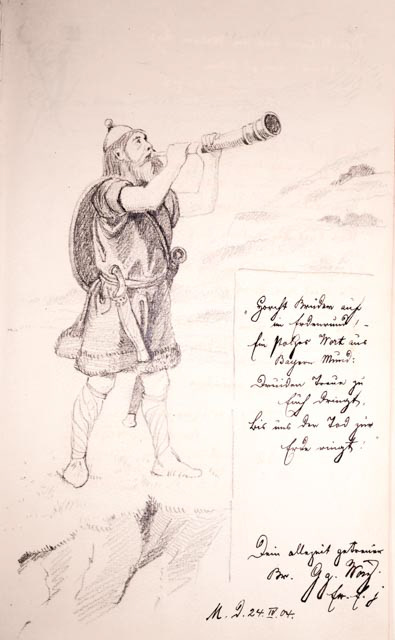 „Horcht Brüder auf
im Erdenrund, –
Ein stolzes Wort aus
Bayern Mund:
Druiden Treue zu
Euch dringt,
Bis uns der Tod zur
Erde ringt."
Dein allezeit getreuer
Br. Gg.
M. D. 24. IV. 04.